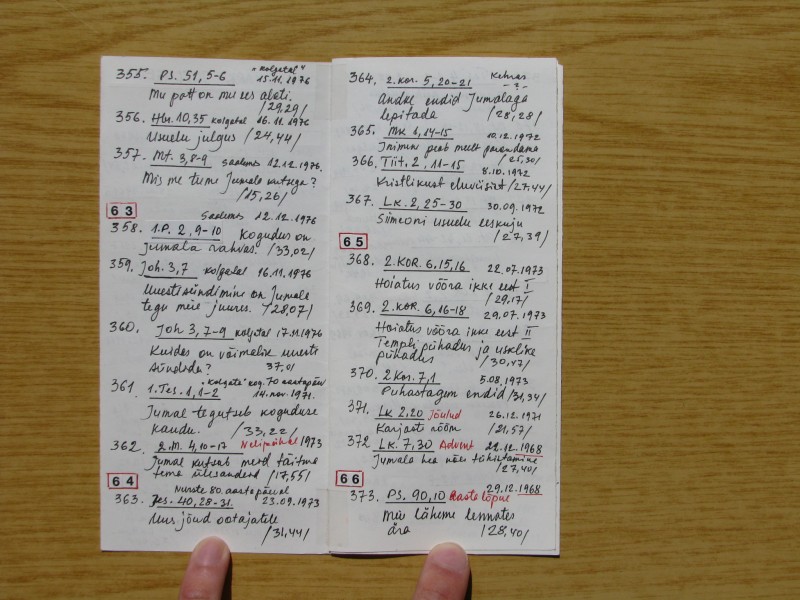 "Kolgatal"
355. Ps. 51, 5-6 15.11.1976
Mu patt on mu ees alati.
/29,29/
356. Hbr. 10,35 Kolgatal 16.11.1976
Usuelu julgus /24,44/
357. Mt. 3,8-9 Saalems 12.12.1976.
Mis me teeme Jumala kutsega?
/15,26/
63
Saalems 12.12.1976
358. 1.P. 2,9-10 Kogudus on
Jumala rahvas. /33,02/
359. Joh. 3,7 Kolgatal 16.11.1976
Uuestisündimine on Jumala
tegu meie juures. /28,07/
360. Joh 3,7-9 Kolgatal 17.11.1976
Kuidas on võimalik uuesti
sündida? 37,01
"Kolgata" kog. 70 aastapäev
361. 1.Tes. 1,1-2 14.nov.1971.
Jumal tegutseb koguduse
kaudu. /33,22/
362. 2.M. 4,10-17 Nelipühal 1973
Jumal kutsub meid täitma
tema ülesandeid /17,55/
64
Nurste 80. aastapäeval
363. Jes. 40,28-31. 23.09.1973
Uus jõud ootajatele
/31,44/
364. 2.Kor. 5,20-21 Kehras
-"-
Andke endid Jumalaga
lepitada /28,28/
365. Mk 1,14-15 10.12.1972
Inimene peab meelt parandama
/25,30/
366. Tiit. 2, 11-15 8.10.1972
Kristlikust eluviisist /27,44/
367. Lk. 2, 25-30 30.09.1972
Siimeoni usuelu eeskuju
/27,39/
65
368. 2.KOR. 6,15,16 22.07.1973
Hoiatus võõra ikke eest I
/29,17/
369. 2.KOR. 6,16-18 29.07.1973
Hoiatus võõra ikke eest II
Templi pühadus ja usklike
pühadus /30,47/
370. 2 Kor. 7,1 5.08.1973
Puhastagem endid /31,34/
371. Lk 2,20 Jõulud 26.12.1971
Karjaste rõõm /21,57/
372 Lk. 7,30 Advent 22.12.1968
Jumala hea nõu tühistamine
/27,40/
66
29.12.1968
373. PS. 90,10 Aasta lõpul
Meie läheme lennates
ära /28,40/